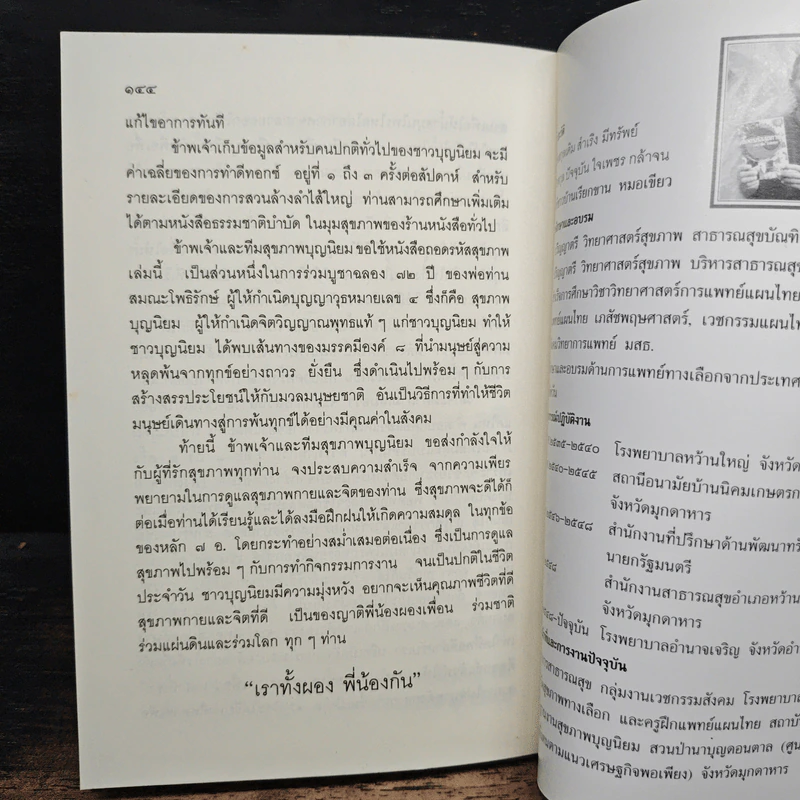 ๑๔๔
แก้ไขอาการทันที
ข้าพเจ้าเก็บข้อมูลสำหรับคนปกติทั่วไปของชาวบุญนิยม จะมี
ค่าเฉลี่ยของการทำดีทอกซ์ อยู่ที่ ๑ ถึง ๓ ครั้งต่อสัปดาห์ สำหรับ
รายละเอียดของการสวนล้างลำไส้ใหญ่ ท่านสามารถศึกษาเพิ่มเติม
ได้ตามหนังสือธรรมชาติบำบัด ในมุมสุขภาพของร้านหนังสือทั่วไป
ข้าพเจ้าและทีมสุขภาพบุญนิยม ขอใช้หนังสือถอดรหัสสุขภาพ
เล่มนี้ เป็นส่วนหนึ่งในการร่วมบูชาฉลอง ๗๒ ปี ของพ่อท่าน
สมณะโพธิรักษ์ ผู้ให้กำเนิดบุญญาวุธหมายเลข ๔ ซึ่งก็คือ สุขภาพ
บุญนิยม ผู้ให้กำเนิดจิตวิญญาณพุทธแท้ ๆ แก่ชาวบุญนิยม ทำให้
ชาวบุญนิยม ได้พบเส้นทางของมรรคมีองค์ ๘ ที่นำมนุษย์สู่ความ
หลุดพ้นจากทุกข์อย่างถาวร ยั่งยืน ซึ่งดำเนินไปพร้อม ๆ กับการ
สร้างสรรประโยชน์ให้กับมวลมนุษยชาติ อันเป็นวิธีการที่ทำให้ชีวิต
มนุษย์เดินทางสู่การพ้นทุกข์ได้อย่างมีคุณค่าในสังคม
ท้ายนี้ ข้าพเจ้าและทีมสุขภาพบุญนิยม ขอส่งกำลังใจให้
กับผู้ที่รักสุขภาพทุกท่าน จงประสบความสำเร็จ จากความเพียร
พยายามในการดูแลสุขภาพกายและจิตของท่าน ซึ่งสุขภาพจะดีได้ก็
ต่อเมื่อท่านได้เรียนรู้และได้ลงมือฝึกฝนให้เกิดความสมดุล ในทุกข้อ
ของหลัก ๗ อ. โดยกระทำอย่างสม่ำเสมอต่อเนื่อง ซึ่งเป็นการดูแล
สุขภาพไปพร้อม ๆ กับการทำกิจกรรมการงาน จนเป็นปกติในชีวิต
ประจำวัน ชาวบุญนิยมมีความมุ่งหวัง อยากจะเห็นคุณภาพชีวิตที่ดี
สุขภาพกายและจิตที่ดี เป็นของญาติพี่น้องผองเพื่อน ร่วมชาติ
ร่วมแผ่นดินและร่วมโลก ทุก ๆ ท่าน
“เราทั้งผอง พี่น้องกัน”
สำเริง มีทรัพย์
ปัจจุบัน ใจเพชร กล้าจน
หมอเขียว
วิทยาศาสตร์สุขภาพ สาธารณสุขบัณฑิต
วิทยาศาสตร์สุขภาพ บริหารสาธารณสุข
การศึกษาวิชาวิทยาศาสตร์การแพทย์แผนไทย
เภสัชพฤษศาสตร์, เวชกรรมแผนไทย
วิทยาการแพทย์ มสธ.
และอบรมด้านการแพทย์ทางเลือกจากประเทศ
ปฏิบัติงาน
๒๕๓๕-๒๕๔๐ โรงพยาบาลหว้านใหญ่ จังหวัด
๒๕๔๐-๒๕๔๕ สถานีอนามัยบ้านนิคมเกษตรก
จังหวัดมุกดาหาร
๒๕๔๖-๒๕๔๘ สำนักงานที่ปรึกษาด้านพัฒนาทรั
นายกรัฐมนตรี
สำนักงานสาธารณสุขอำเภอหว้าน
จังหวัดมุกดาหาร
-ปัจจุบัน โรงพยาบาลอำนาจเจริญ จังหวัดอำ
และการงานปัจจุบัน
สาธารณสุข กลุ่มงานเวชกรรมสังคม โรงพยาบาล
สุขภาพทางเลือก และครูฝึกแพทย์แผนไทย สถาบั
งานสุขภาพบุญนิยม สวนป่านาบุญดอนตาล (ศูน
ตามแนวเศรษฐกิจพอเพียง) จังหวัดมุกดาหาร